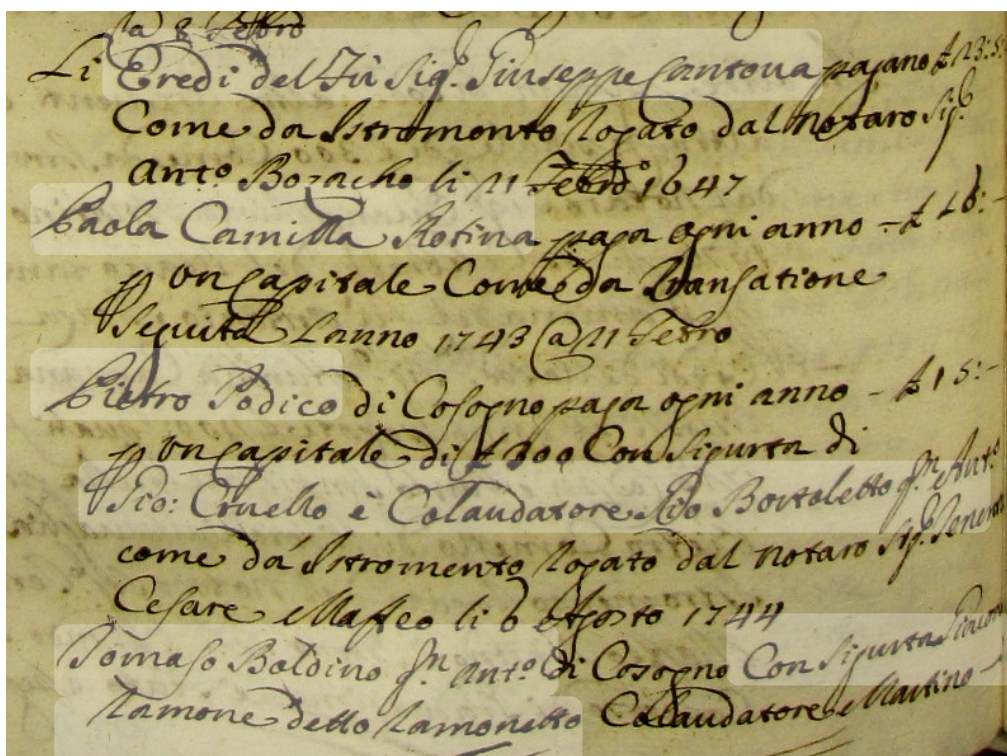 la 8 Febro
Li Eredi del Fù Sig.r Giuseppe Cantova pagano £ 23:5:
Come da Istromento Rogato dal Notaro Sig.r
Ant.o li 21 Febro 1647
Paola Camilla Rotina paga ogni anno - £ 16:-
p un Capitale Come da Transatione
Seguita Lanno 1743 @ 21 Febro
Pietro Podico di Cosogno paga ogni anno - £ 15:-
p un Capitale di £ 300 Con Sigurta di
Gio: Cruello è Colaudatore Gio Bortoletto qm Ant.o
come dà Istromento Rogato dal Notaro Sig.r
Cesare Maffeo li 6 Agosto 1744
Tomaso Boldino qm Ant.o di Cosogno Con Sigurta
Ramone detto Ramonetto Colaudatore Martino -